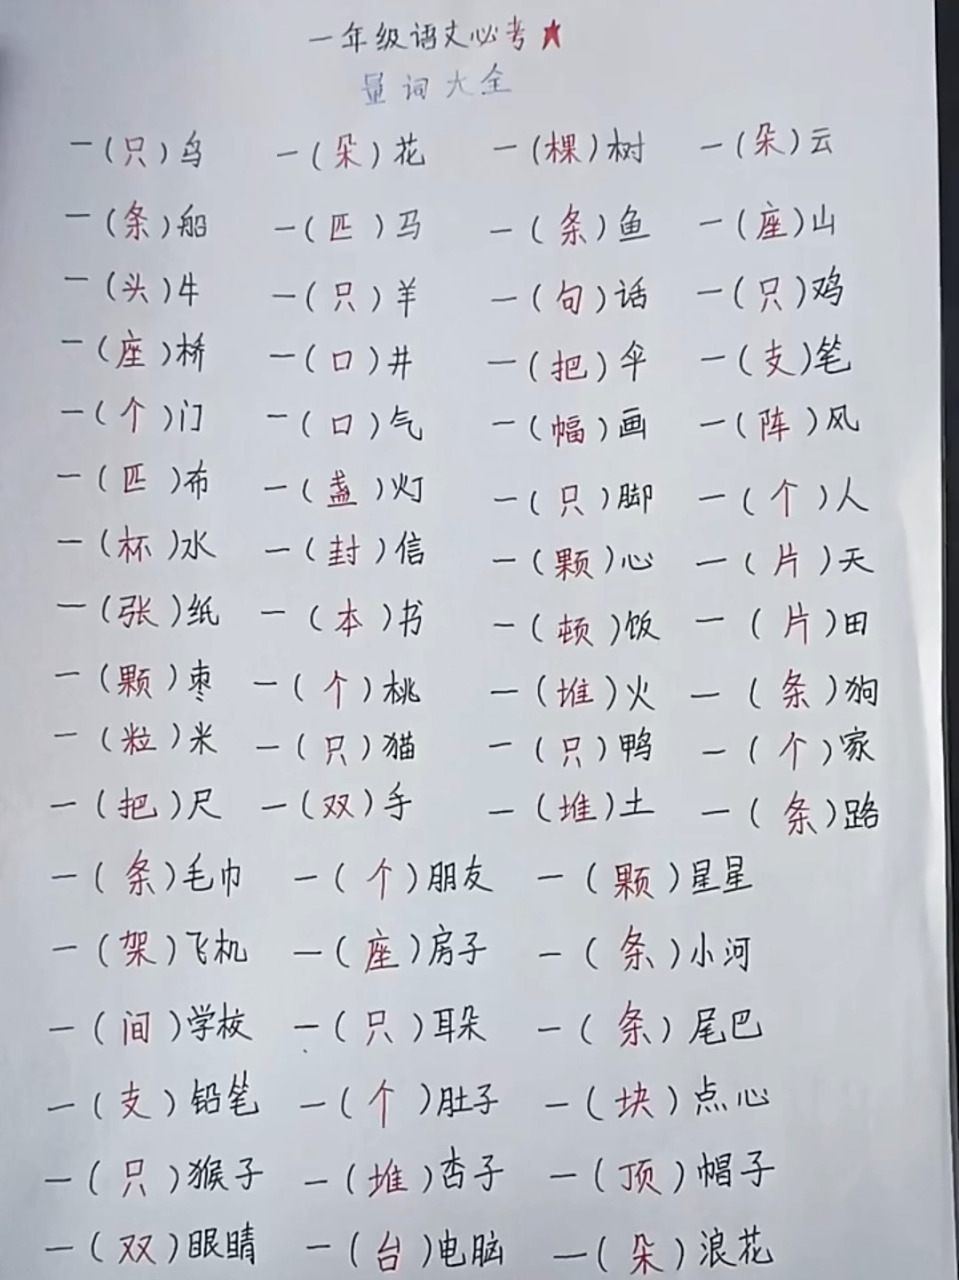 一年级语文必考★
量词大全
一(只)鸟 一(朵)花 一(棵)树 一(朵)云
一(条)船 一(匹)马 一(条)鱼 一(座)山
一(头)牛 一(只)羊 一(句)话 一(只)鸡
一(座)桥 一(口)井 一(把)伞 一(支)笔
一(个)门 一(口)气 一(幅)画 一(阵)风
一(匹)布 一(盏)灯 一(只)脚 一(个)人
一(杯)水 一(封)信 一(颗)心 一(片)天
一(张)纸 一(本)书 一(顿)饭 一(片)田
一(颗)枣 一(个)桃 一(堆)火 一(条)狗
一(粒)米 一(只)猫 一(只)鸭 一(个)家
一(把)尺 一(双)手 一(堆)土 一(条)路
一(条)毛巾 一(个)朋友 一(颗)星星
一(架)飞机 一(座)房子 一(条)小河
一(间)学校 一(只)耳朵 一(条)尾巴
一(支)铅笔 一(个)肚子 一(块)点心
一(只)猴子 一(堆)杏子 一(顶)帽子
一(双)眼睛 一(台)电脑 一(朵)浪花